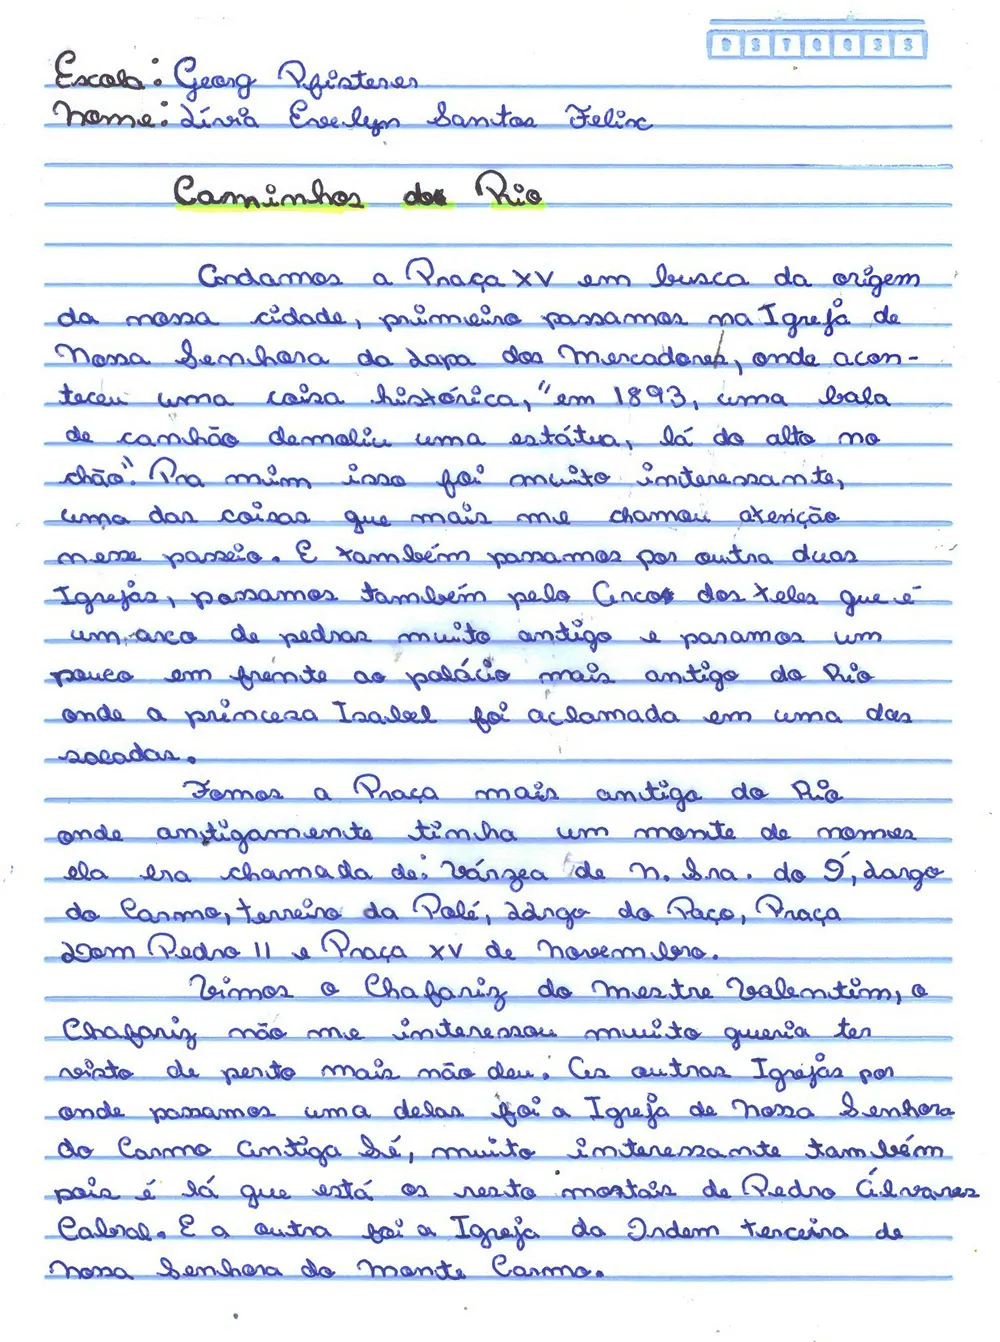 0370033
Escola: Georg Pfisterer
Nome: Lívia Evelyn Santos Felix
Caminhos do Rio
Andamos a Praça XV em busca da origem
da nossa cidade, primeiro passamos na Igreja de
Nossa Senhora da Lapa dos Mercadores, onde acon-
teceu uma coisa histórica, "em 1893, uma bala
de canhão demoliu uma estátua, lá do alto no
chão". Pra mim isso foi muito interessante,
uma das coisas que mais me chamou atenção
nesse passeio. E também passamos por outra duas
Igrejas, passamos também pelo Arco dos teles que é
um arco de pedras muito antigo e paramos um
pouco em frente ao palácio mais antigo do Rio
onde a princesa Isabel foi aclamada em uma das
sacadas.
Fomos a Praça mais antiga do Rio
onde antigamente tinha um monte de nomes
ela era chamada de: Várzea de N. Sra. do Ó, Largo
do Carmo, terreiro da Polé, Largo do Paço, Praça
Dom Pedro II e Praça XV de Novembro.
Vimos o Chafariz do Mestre Valentim, o
Chafariz não me interessou muito queria ter
visto de perto mais não deu. As outras Igrejas por
onde passamos uma delas foi a Igreja de Nossa Senhora
do Carmo Antiga Sé, muito interessante também
pois é lá que está os resto mortais de Pedro Álvares
Cabral. E a outra foi a Igreja da Ordem terceira de
Nossa Senhora do Monte Carmo.